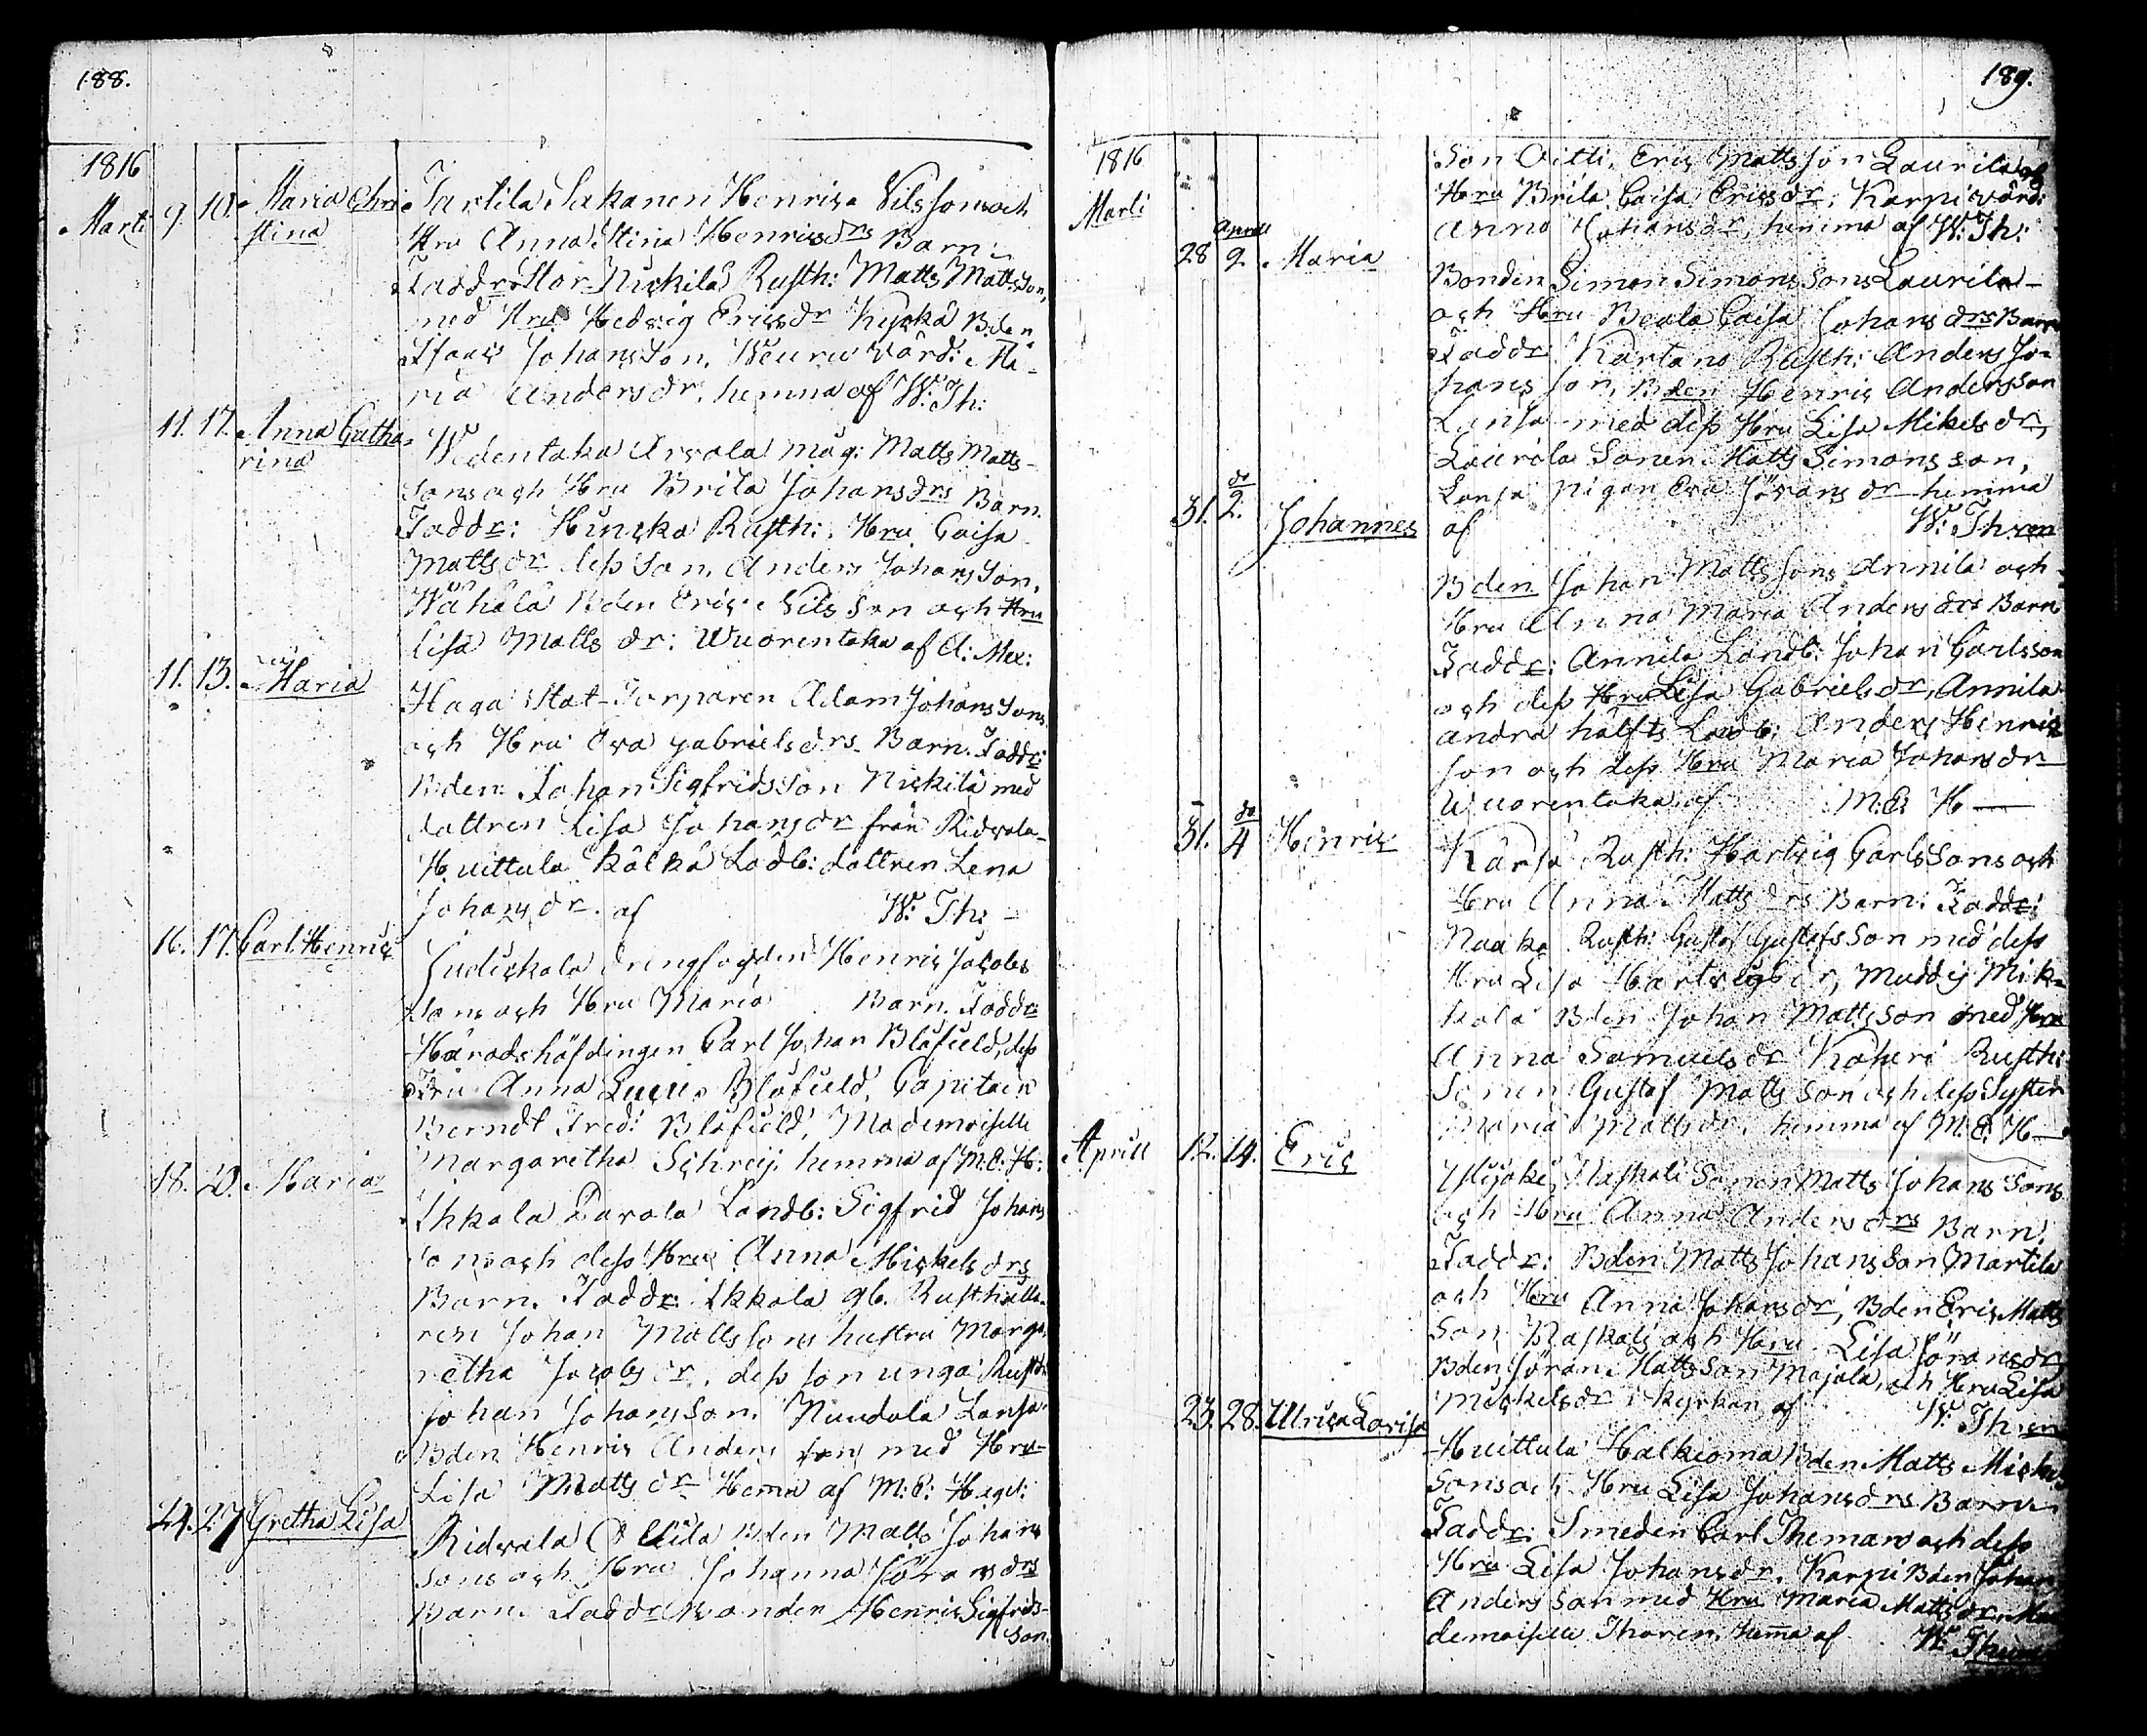 188.
1816
Marti 9. 10. Maria Chri- Tartila Sakanen Henrics Nilssons och
stina Hru Anna Stina Henricsdrs Barn:
Faddr: Stor Nickilä Rusth: Matts Mattsson,
med Hru Hedvig Ericsdr Kyskä Bden
Isaac Johansson, Weuru vård: Ma-
ria Andersdr. hemma af W: Th:
11. 17. Anna Catha- Wedentaka Arvola måg: Matts Matts-
rina sons och Hru Brita Johansdrs Barn.
Faddr: Huncka Rusth: Hru Caisa
Mattsdr dess Son, Anders Johansson,
Wähälä Bden Eric Nilsson och Hru
Lisa Mattsdr: Wuorentaka af A: Mex:
11. 13. Maria Haga Stat-Torparen Adam Johanssons
och Hru Eva Gabrielsdrs Barn. Faddr:
Bden Johan Sigfridsson Nickilä med
dottren Lisa Johansdr från Ridvala
Huittula Kälkä Ladb: dottren Lena
Johansdr. af W: Th:
16. 17. Carl Henric Judickala drengfogden Henric Jacobs
sons och Hru Maria Barn. Faddr:
Häradshöfdingen Carl Johan Blåfield, dess
Fru Anna Blåfield, Capitain
Berndt Fred: Blåfield, Mademoiselle
Margaretha Schreij. hemma af M: E: H:
18. 20. Maria Ihkala Parola Landb: Sigfrid Johans
sons och dess Hru Anna Mickelsdrs
Barn. Faddr: Ikkala gb. Rusthålla-
ren Johan Mattssons hustru Marga-
retha Jacobsdr, dess son unga Rusth:
Johan Johansson, Nuudala Lansa
Bden Henric Andersson med Hru
Lisa Mattsdr Hema af M: E: Hagel:
24. 27 Gretha Lisa Ridvala Ollila Bden Matts Johans
sons och Hru Johanna Jöransdrs
Barn. Faddr: Bonden Henric Sigfrids-
son
189.
1816
Marti
Son Oitti, Eric Mattsson Laurila och
Hru Brita Caisa Ericsdr, Karpi vård:
Anna Johansdr, hemma af W: Th:
Aprill
28 2. Maria Bonden Simon Simonssons Laurila
och Hru Beata Caisa Johansdrs Barn
Faddr. Kartano Rusth: Anders Jo-
hansson, Bden Henric Andersson
Lansa med dess Hru Lisa Mikelsdr,
Laurila Sonen Matts Simonsson,
Lansa pigan Eva Jöransdr hemma
af W: Thoren
do
31. 2. Johannes Bden Johan Mattssons Annila och
Hru Anna Maria Andersdrs Barn
Faddr: Annila Landb: Johan Carlsson
och dess Hru Lisa Gabrielsdr, Annila
andra halfts Landb: Anders Henric
son och dess Hru Maria Johansdr
Wuorentaka af M: E: H
do
31. 4 Henric Kärsä Rusth: Hartvig Carlssons och
Hru Anna Mattsdrs Barn: Faddr:
Naaka Rusth: Gustaf Gustafsson med dess
Hru Lisa Hartvigsdr, Muddij Mik-
kola Bden Johan Mattsson med Hru
Anna Samuelsdr Kaseri Rusth:
Sonen Gustaf Mattsson och dess Syster
Maria Mattsdr. hemma af M: E: H
Aprill 12. 14. Eric Raskali Sonen Matts Johanssons
och Hru Anna Andersdrs Barn,
Faddr: Bden Matts Johansson Martila
och Hru Anna Johansdr, Bden Eric Matts
son Raskali och Hru Lisa Jöransdr,
Bden Jöran Mattsson Majala, och Hru Lisa
Mickelsdr i kyrkan af W: Thoren
23. 28. Ulrica Lovisa Huittula Halkioma Bden Matts Mickels
sons och Hru Lisa Johansdrs Barn.
Faddr: Smeden Carl Themarv och dess
Hru Lisa Johansdr. Karpi Bden Johan
Andersson med Hru Maria Mattsdr. Ma
demoiselle Thoren. hema af W: Thoren